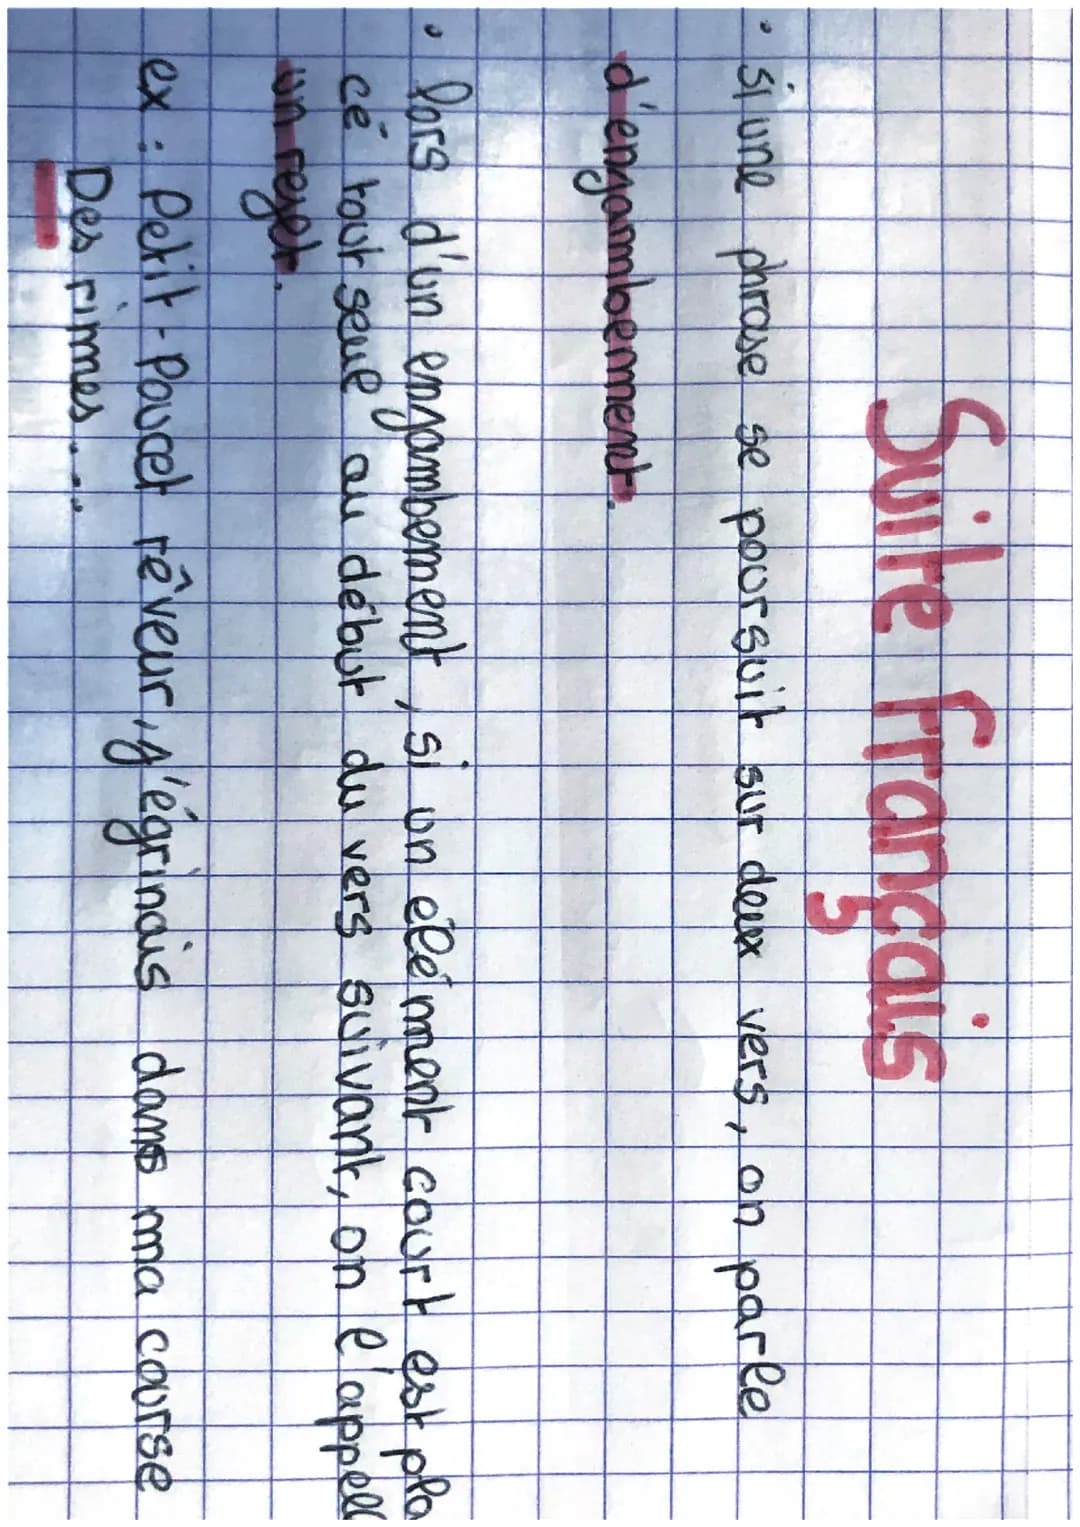 Suite français
• si une phrase se poursuit sur deux vers, on parle
d'enjambement.
• lors d'un enjambement, si un élément court est pla
cé tout seul au début du vers suivant, on l'appell
un rejet.
ex : Petit-Poucet rêveur, j'égrinais dans ma course
Des rimes...